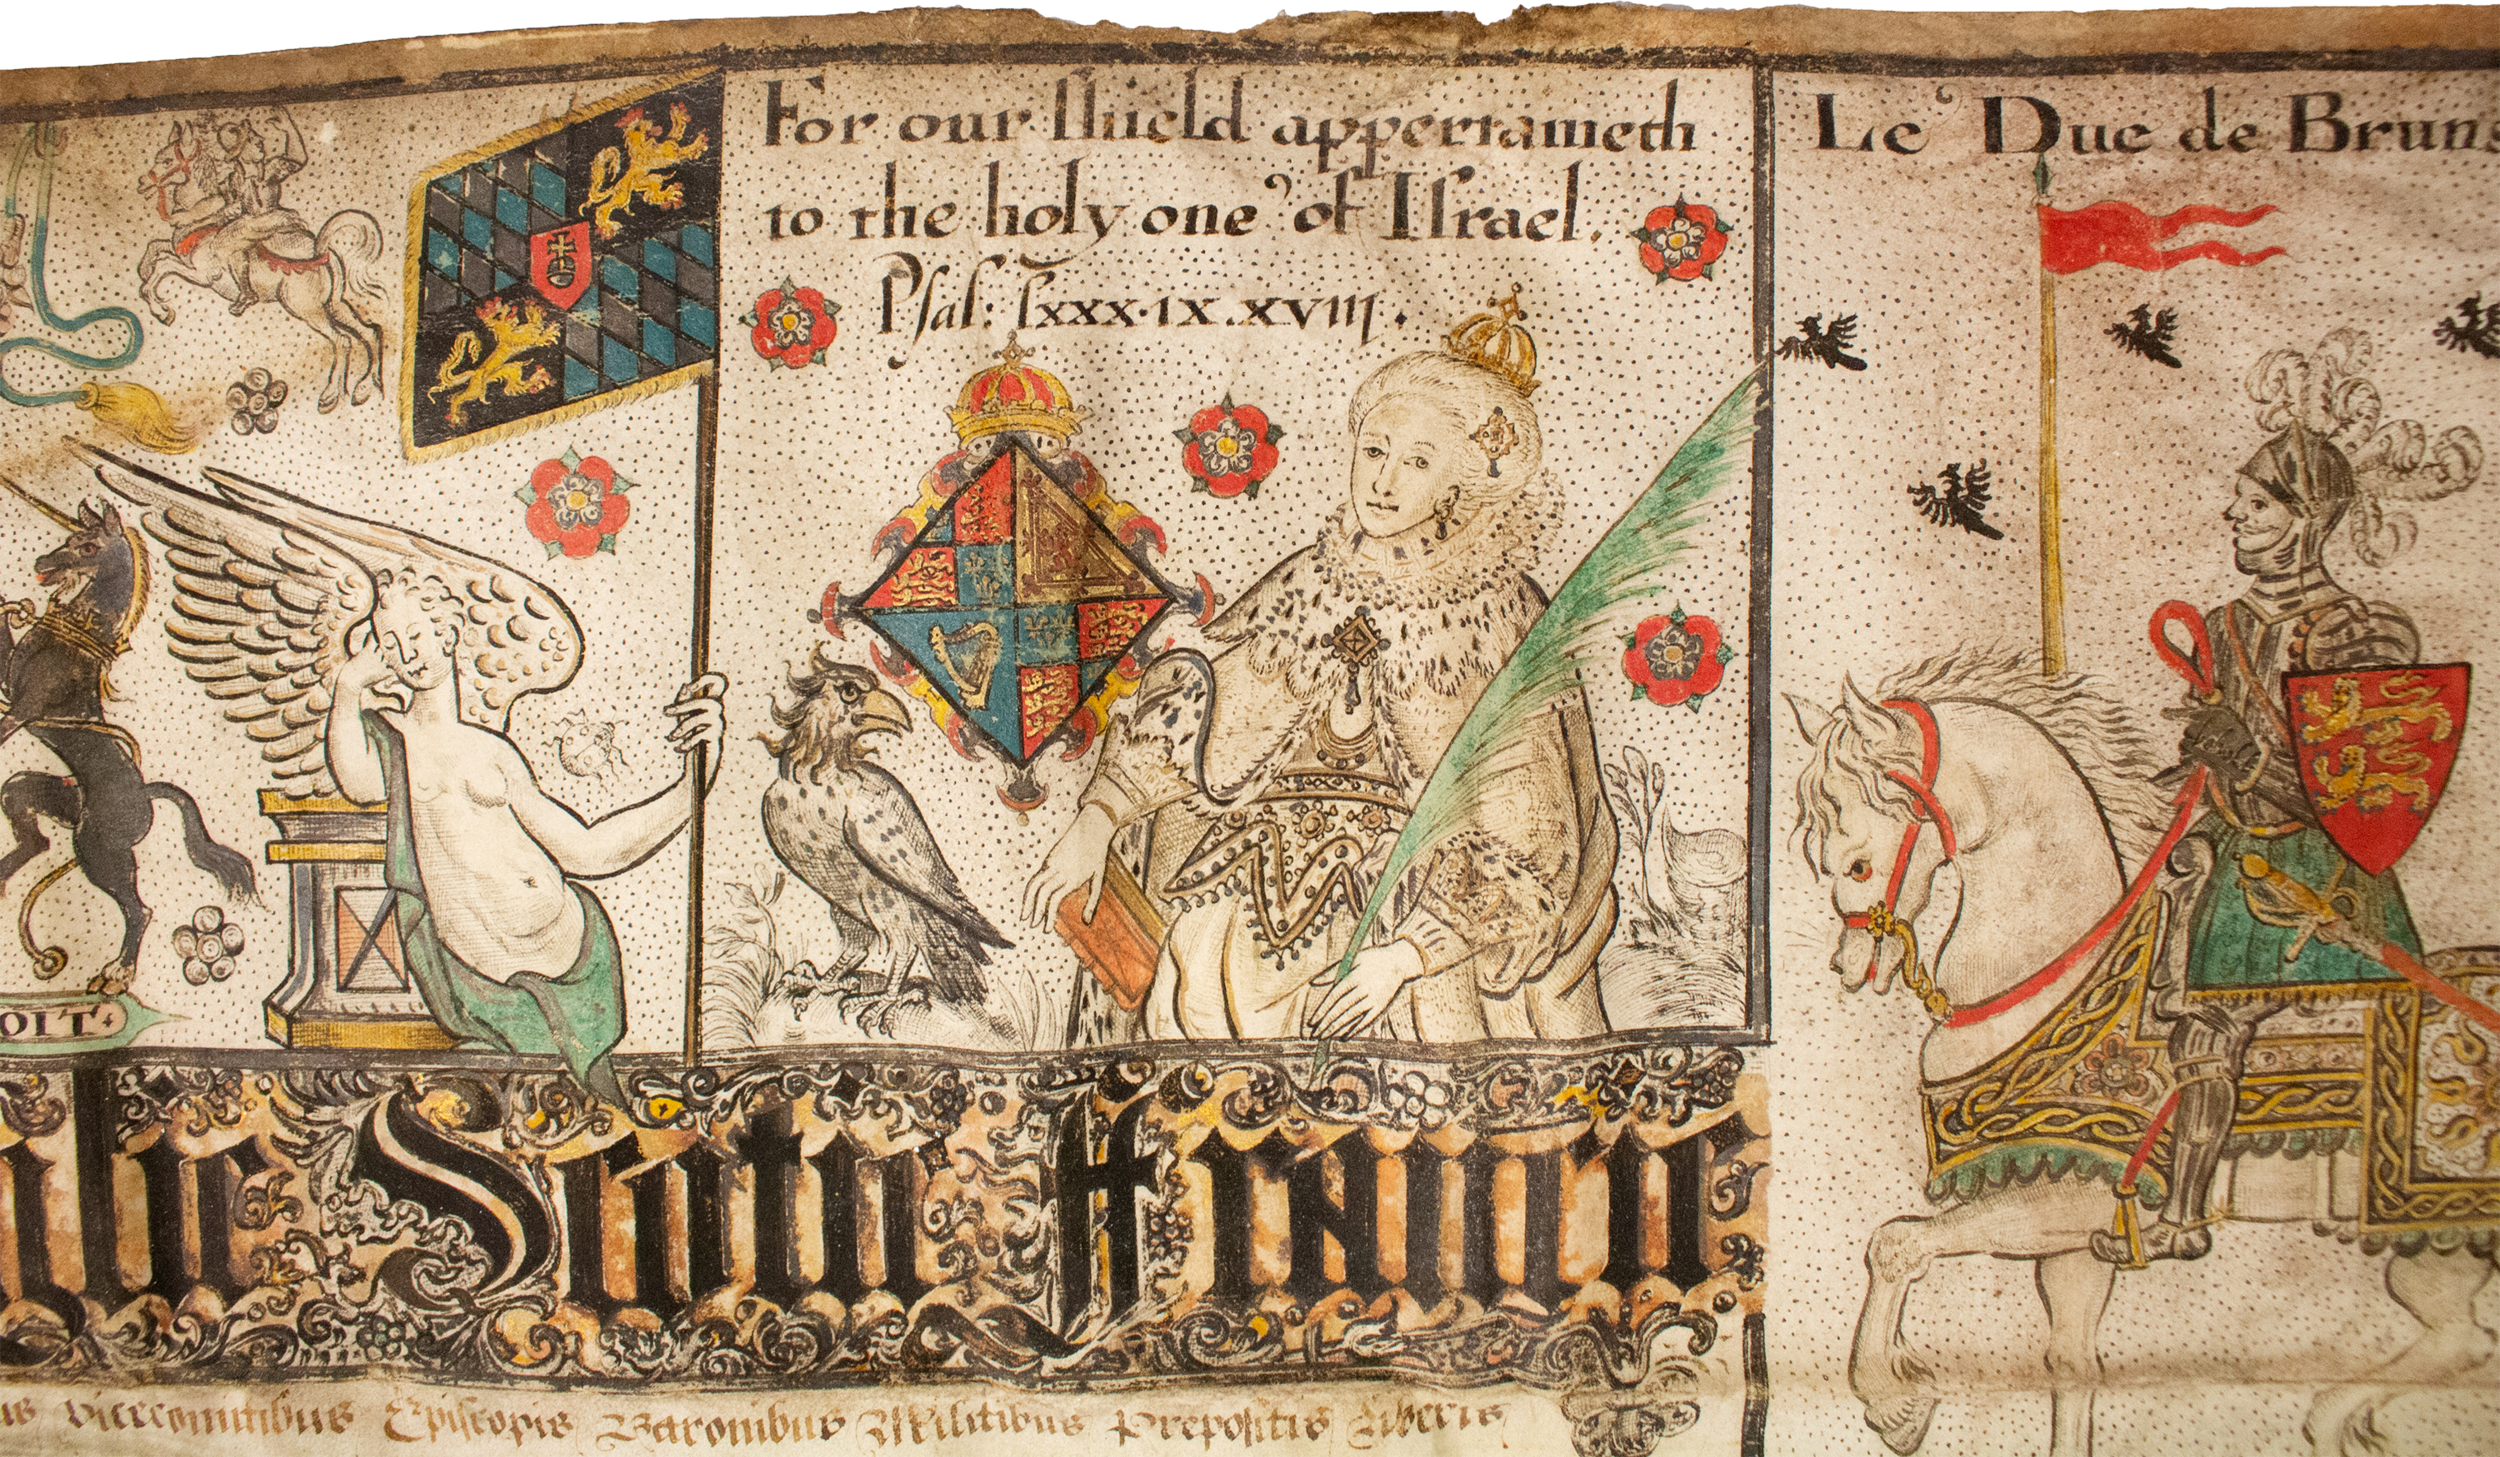 For our shield appertaineth
to the holy one of Israel.
Psal: lxxx.ix.xviii.
Le Duc de Bruns
OIT
Vicecomitibus Episcopis Baronibus Militibus Prepositis Liberis